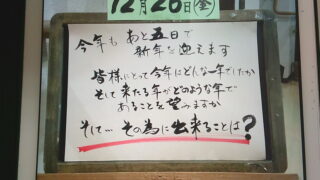 12月26日(金)
今年も あと五日で
新年を迎えます
皆様にとって今年はどんな年でしたか
そして来たる年がどのような年で
あることを望みますか
そして… その為に出来ることは?